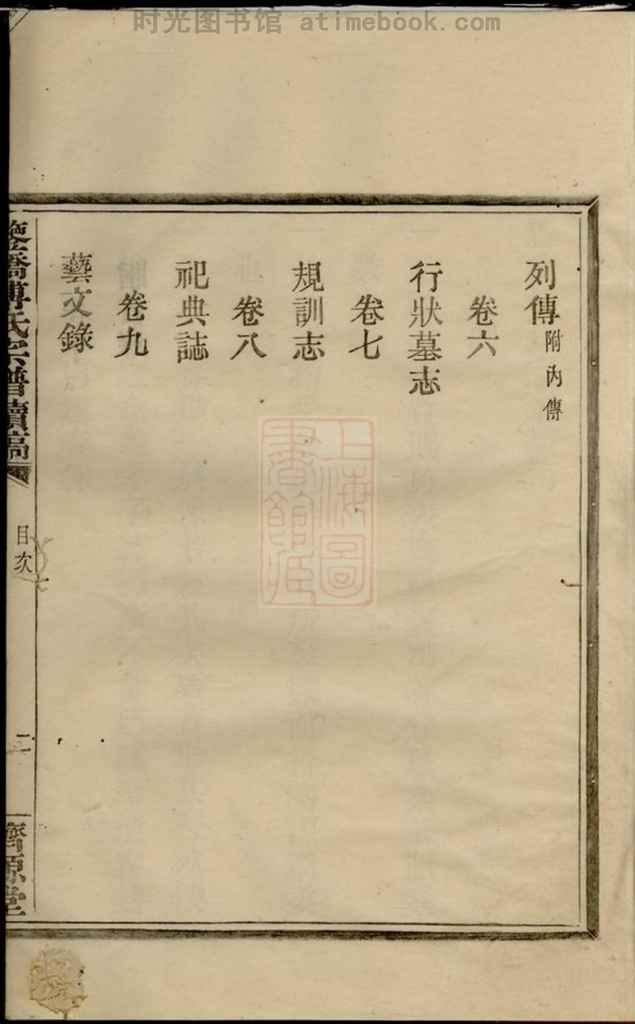 时光图书馆 atimebook.com
列傳附內傳
卷六
行狀墓志
卷七
規訓志
卷八
祀典誌
卷九
藝文錄
橋傅氏宗譜續稿
目次
二
濟源堂
上海圖書館藏